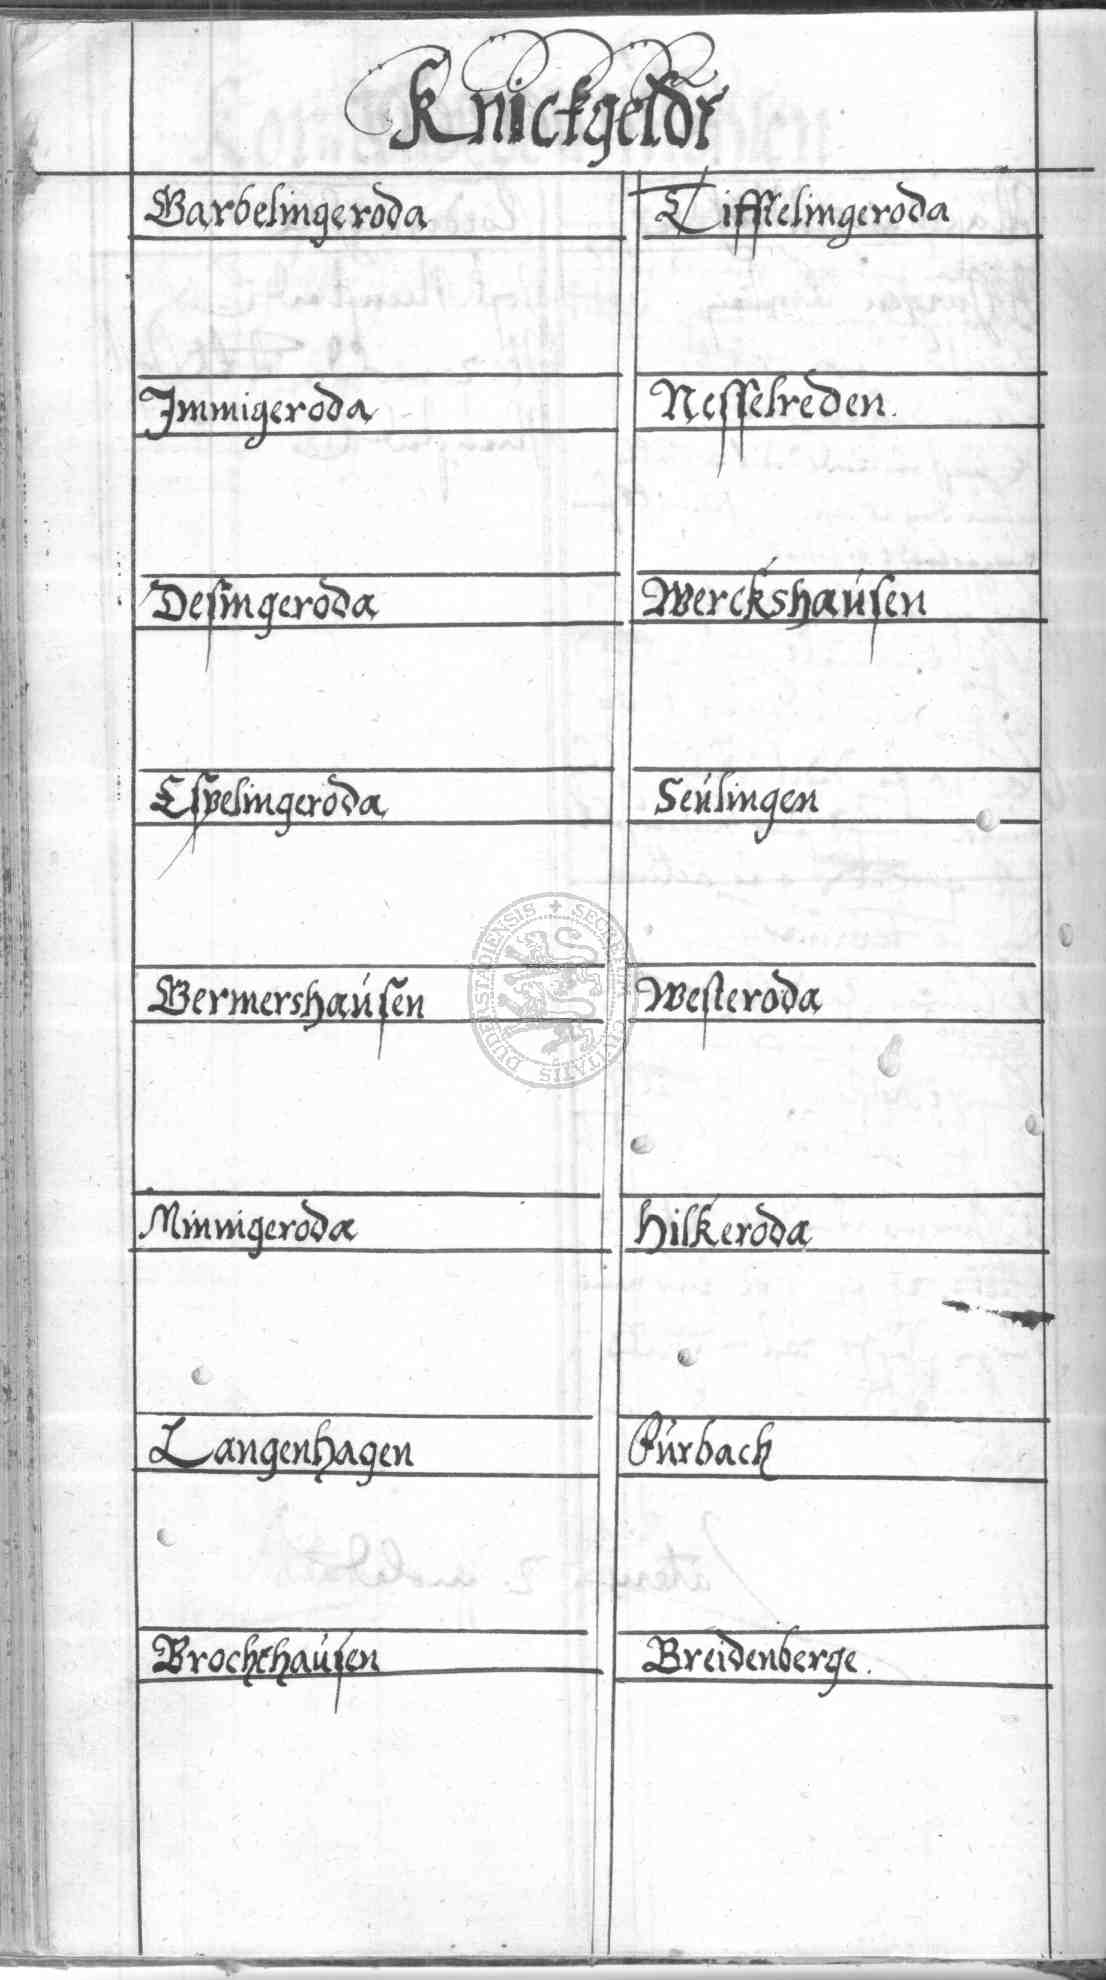 Knickgeldt
Barbelingeroda
Tifftelingeroda
Immigeroda
Nesselreden.
Desingeroda
Werckshausen
Espelingeroda
Seulingen
Bermershausen
Westeroda
Minnigeroda
Hilkeroda
Langenhagen
Furbach
Brochthausen
Breidenberge.
DUDERSTADIENSIS + SECRETUM CIVITATIS